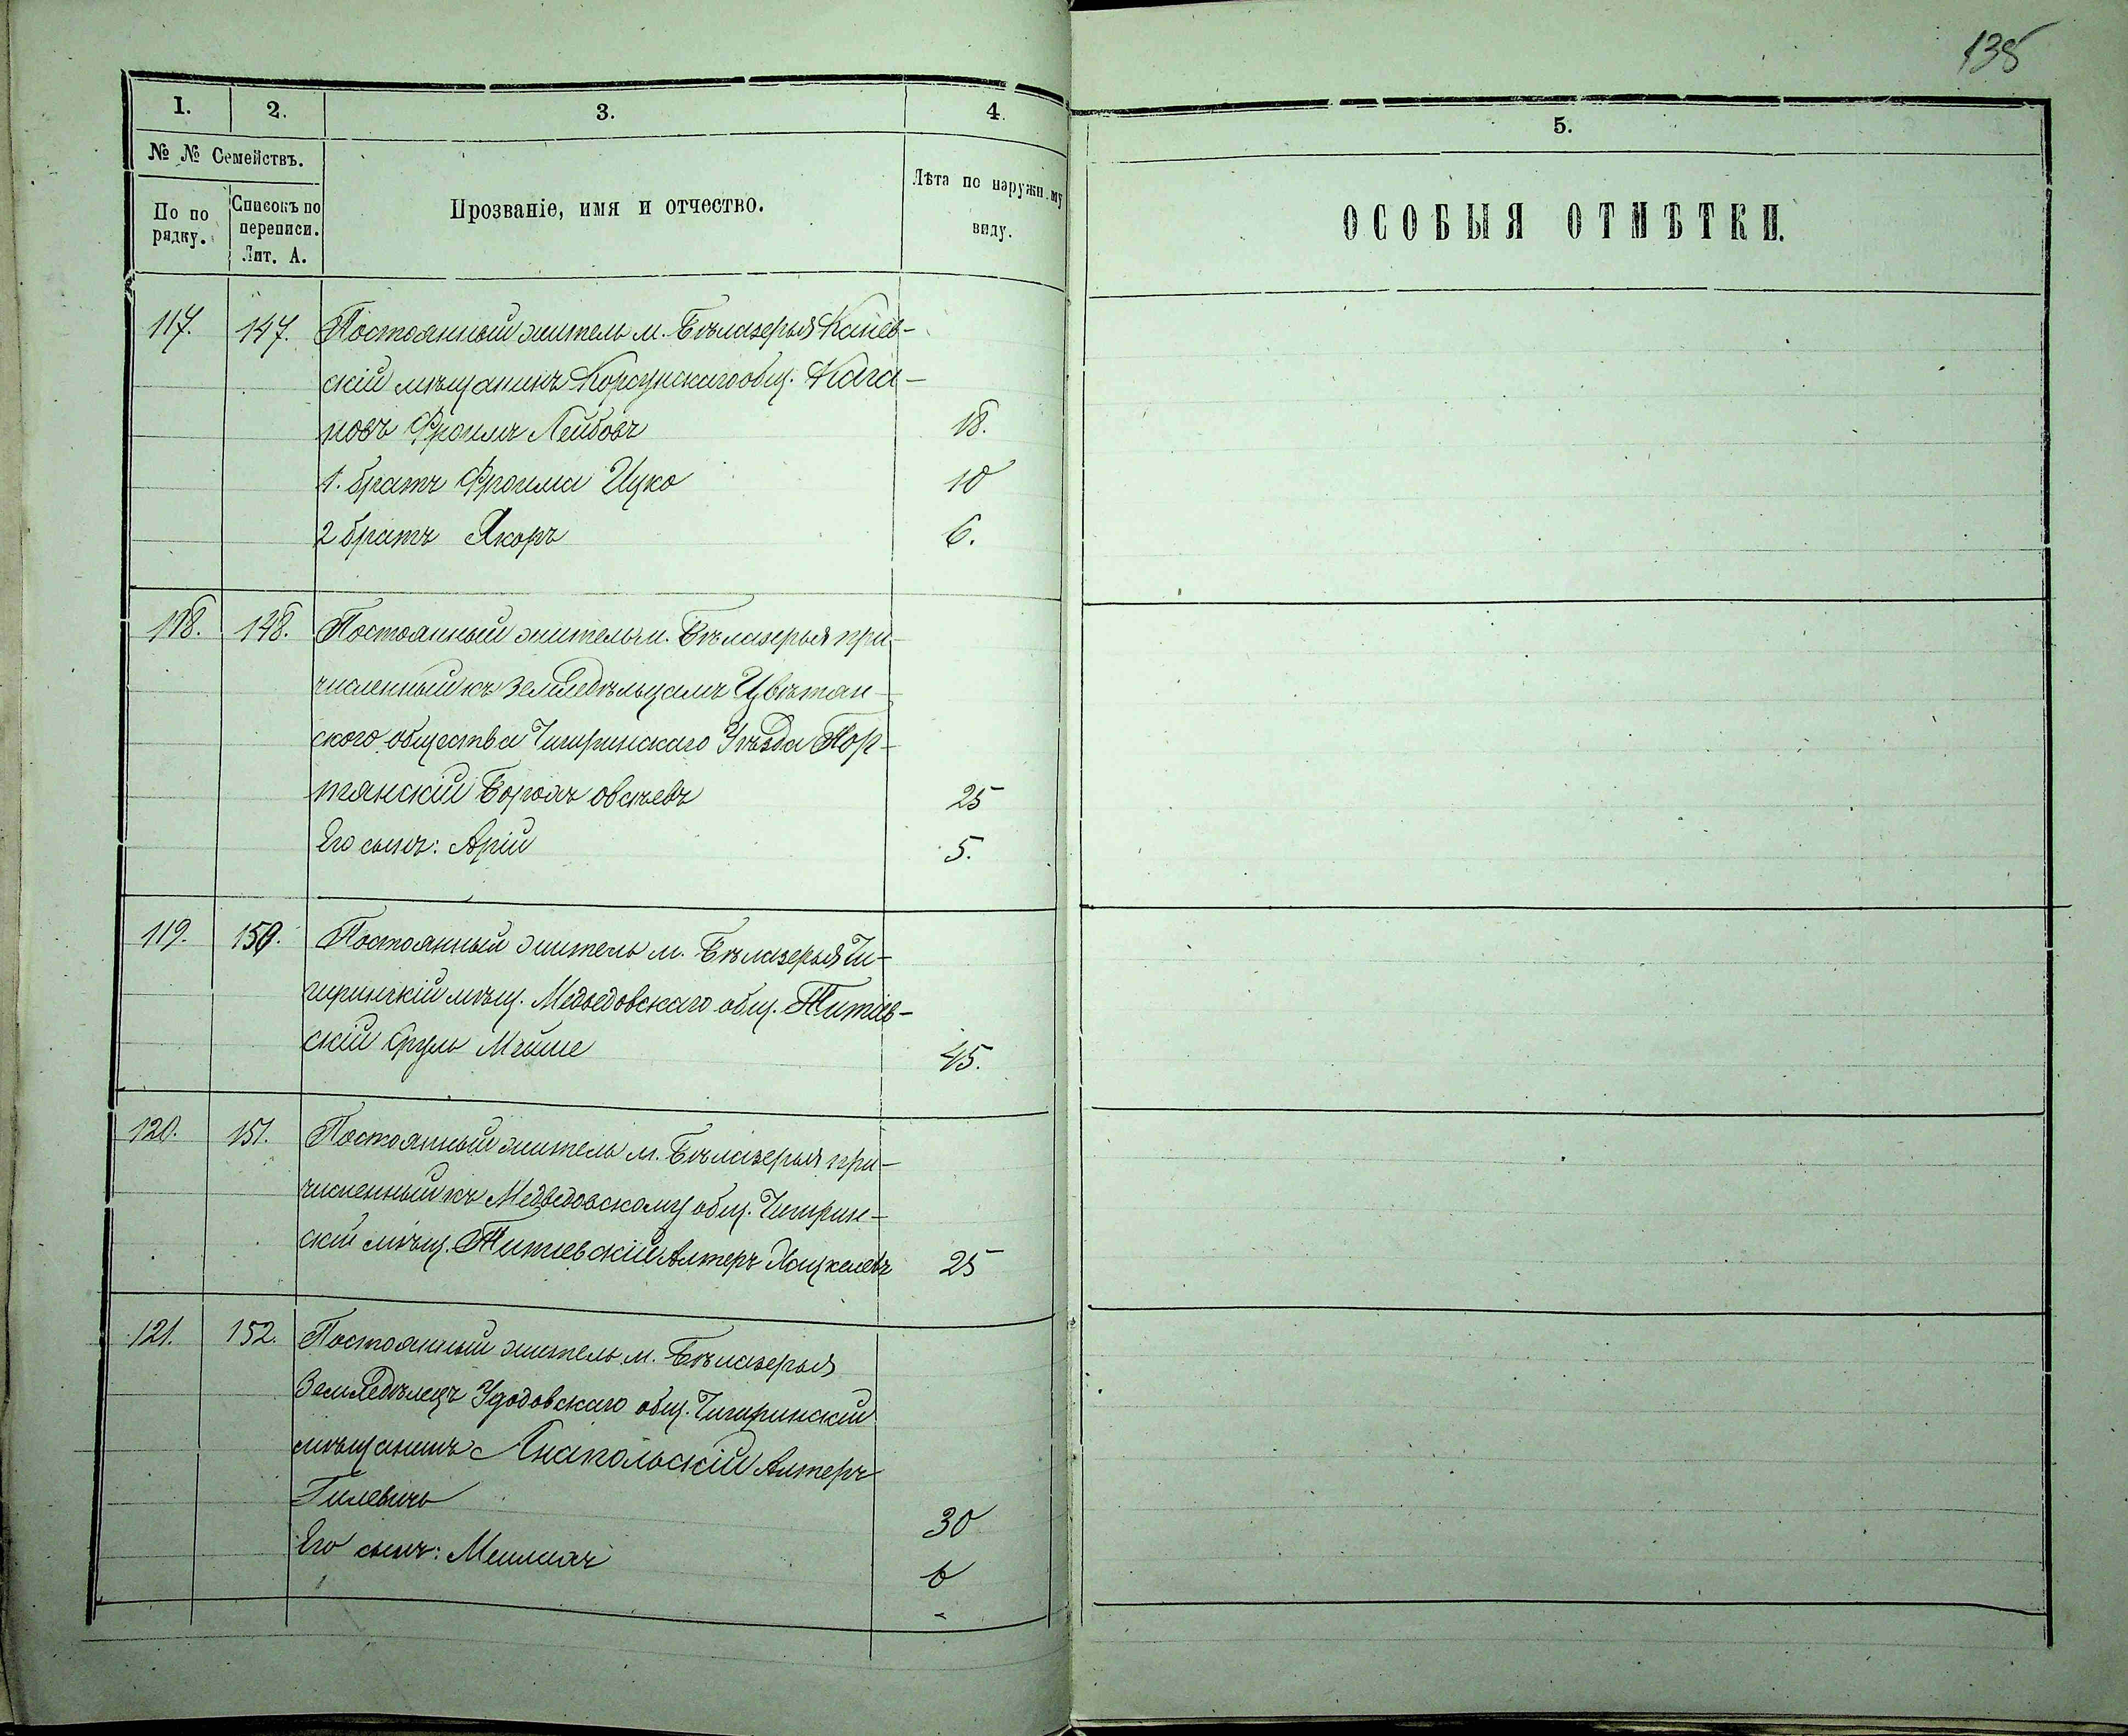 135
1. 2. 3. 4. 5.
№ № Семействъ.
По порядку. Списокъ по переписи. Лит. А. Прозваніе, имя и отчество. Лѣта по наружному виду. ОСОБЫЯ ОТМѢТКИ.
117. 147. Постоянный житель м. Бѣлазерья Канев-
скій мѣщанинъ Корсунскаго общ. Кага-
новъ Фроимъ Лейбовъ 18.
1. братъ Фроима Ицко 10
2 братъ Янкорь 6.
118. 148. Постоянный житель м. Бѣлазерья при-
численный къ земледѣльцамъ Цвѣтан-
ского общества Чигиринскаго Уѣзда Пор-
тянскій Борохъ Овсѣевъ 25
Его сынъ: Арій 5.
119. 150. Постоянный житель м. Бѣлазерья Чи-
гиринскій мѣщ. Медведовскаго общ. Титіев-
скій Сруль Мейше 45.
120. 151. Постоянный житель м. Бѣлазерья при-
численный къ Медведовскому общ. Чигирин-
скій мѣщ. Титіевскій Алтеръ Хацкелевъ 25
121. 152. Постоянный житель м. Бѣлазерья
Земледѣлецъ общ. Чигиринскій
мѣщанинъ Анатольскій Алтеръ
Гилевичъ 30
Его сынъ: 6